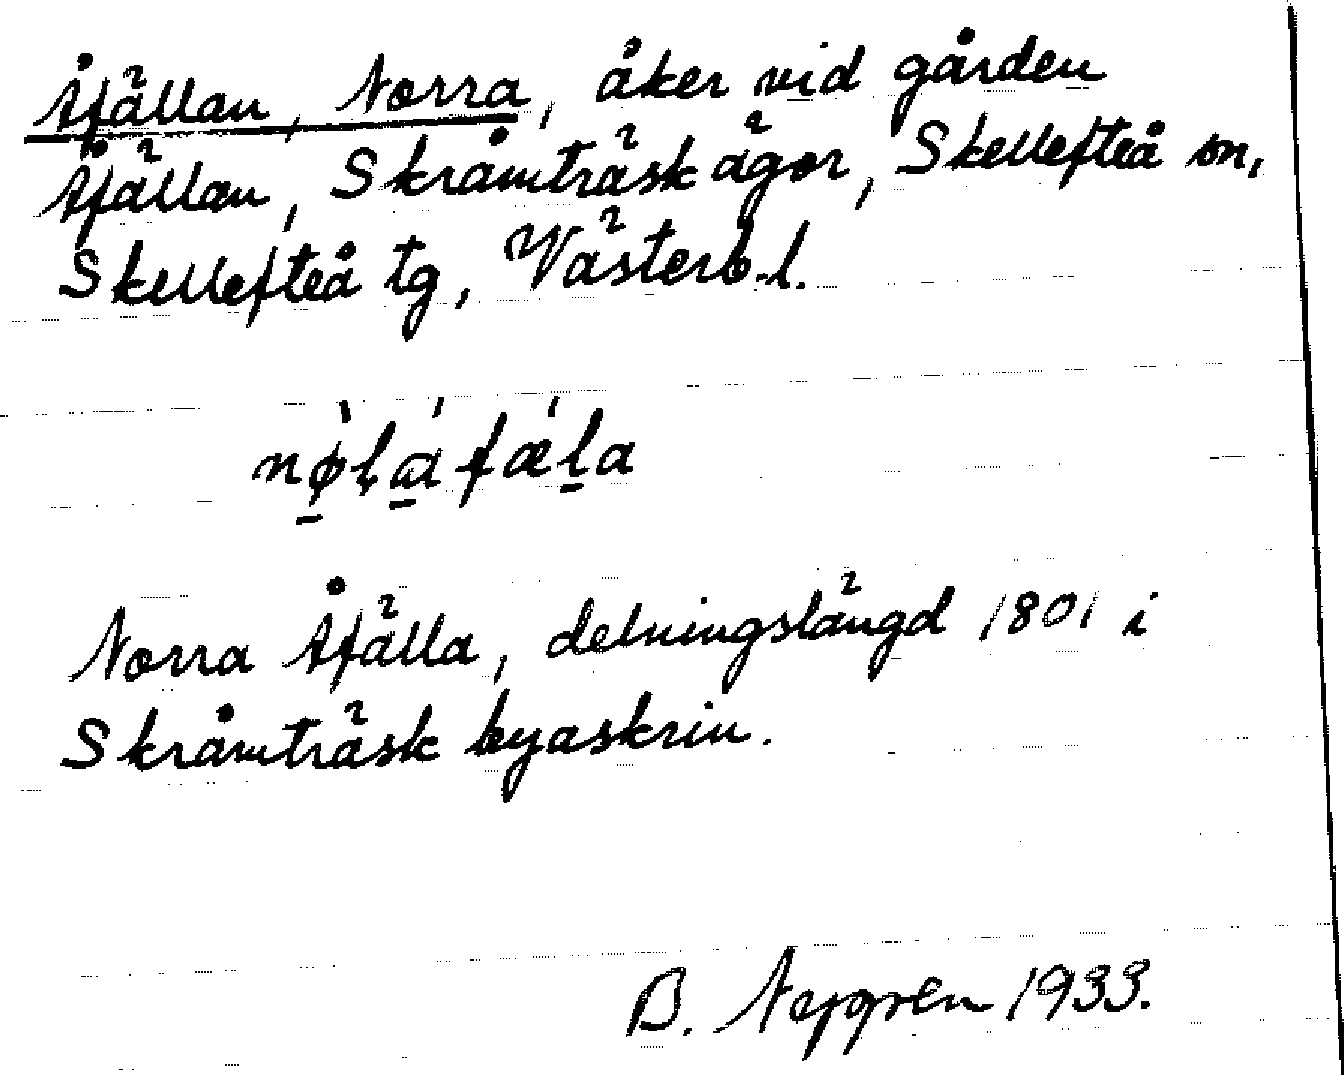 Åfällan, Norra, åker vid gården
Åfällan, Skråmträsk ägor, Skellefteå sn,
Skellefteå tg, Västerb. l.
Norra Åfälla, delningslängd 1801 i
Skråmträsk byaskrin.
B. 1933.